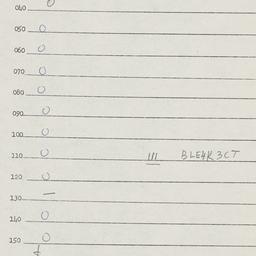 040 0
050 0
060 0
070 0
080 0
090 0
100 0
110 0 111 BLE4K3CT
120 0
130 —
140 0
150 0